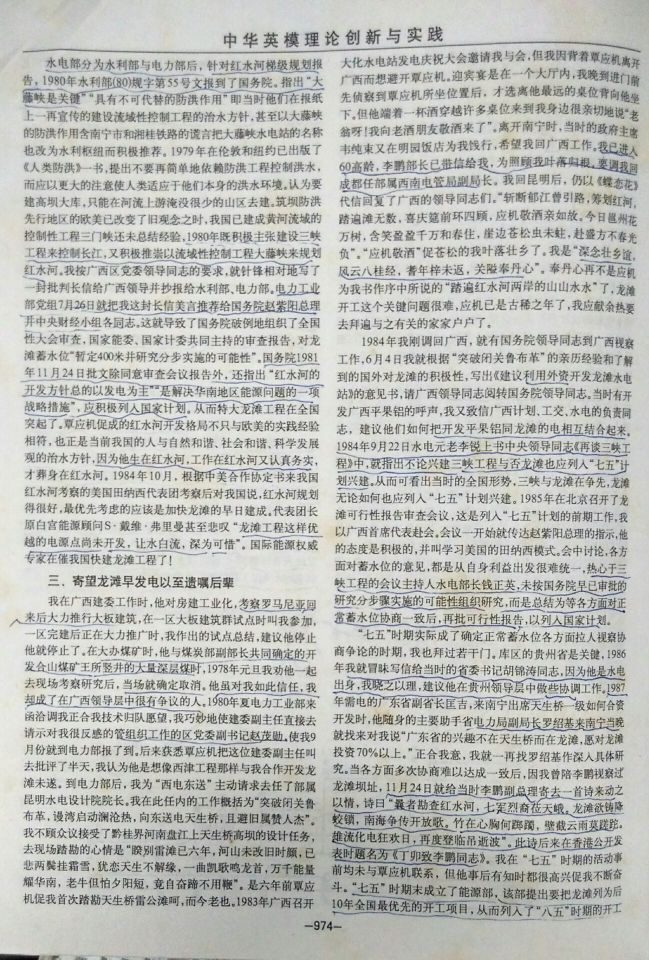 中华英模理论创新与实践
水电部分为水利部与电力部后，针对红水河梯级规划报
告，1980年水利部(80)规字第55号文报到了国务院。指出“大
藤峡是关键”“具有不可代替的防洪作用”即当时他们在报纸
上一再宣传的建设流域性控制工程的治水方针，甚至以大藤峡
的防洪作用含南宁市和湘桂铁路的谎言把大藤峡水电站的名称
也改为水利枢纽而积极推荐。1979年在伦敦和纽约已出版了
《人类防洪》一书，提出不要再简单地依赖防洪工程控制洪水，
而应以更大的注意使人类适应于他们本身的洪水环境。认为要
建高坝大库，只能在河流上游淹没很少的山区去建。筑坝防洪
先行地区的欧美已改变了旧观念之时，我国已建成黄河流域的
控制性工程三门峡还未总结经验，1980年既积极主张建设三峡
工程来控制长江，又积极推崇以流域性控制工程大藤峡来规划
红水河。我按广西区党委领导同志的要求，就针锋相对地写了
一封批判长信给广西领导并抄报给水利部、电力部。电力工业
部党组7月26日就把我这封长信美言推荐给国务院赵紫阳总理
并中央财经小组各同志，这就导致了国务院破例地组织了全国
性大会审查，国家能委、国家计委共同主持的审查报告，对龙
滩蓄水位“暂定400米并研究分步实施的可能性”。国务院1981
年11月24日批文除同意审查会议报告外，还指出“红水河的
开发方针总的以发电为主”“是解决华南地区能源问题的一项
战略措施”，应积极列入国家计划。从而特大龙滩工程在全国
突起了。覃应机促成的红水河开发格局不只与欧美的实践经验
相符，也正是当前我国的人与自然和谐、社会和谐、科学发展
观的治水方针，因为他生在红水河，工作在红水河又认真务实，
才葬身在红水河。1984年10月，根据中美合作协定书来我国
红水河考察的美国田纳西代表团考察后对我国说，红水河规划
得很好，最优先考虑的应该是加快龙滩的早日建成。代表团长
原白宫能源顾问S·戴维·弗里曼甚至悲叹“龙滩工程这样优
越的电源点尚未开发，让水白流，深为可惜”。国际能源权威
专家在催我国快建龙滩工程了！
三、寄望龙滩早发电以至遗嘱后辈
我在广西建委工作时，他对房建工业化，考察罗马尼亚回
来后大力推行大板建筑，在一区大板建筑群试点时叫我参加，
一区完建后正在大力推广时，我作出的试点总结，建议他停止
他就停止了。在大办煤矿时，他与煤炭部副部长共同确定的开
发合山煤矿王所竖井的大量深层煤时，1978年元旦我劝他一起
去现场考察研究后，当场就确定取消。他虽对我如此信任，我
却成了在广西领导层中很有争议的人。1980年夏电力工业部来
函洽调我正合我技术归队愿望，我巧妙地使建委副主任直接去
请示对我很反感的管组织工作的区党委副书记赵茂勋，使我9
月份就到电力部报了到。后来获悉覃应机把这位建委副主任叫
去批评了半天，我认为他是想像西津工程那样与我合作开发龙
滩未遂。到电力部后，我为“西电东送”主动请求去任了部属
昆明水电设计院院长。我在此任内的工作概括为“突破闭关鲁
布革，谩湾启动澜沧热，向东送电天生桥，且避旧属赞人杰”。
我不顾众议接受了黔桂界河南盘江上天生桥高坝的设计任务，
去现场踏勘的心情是“睽别雷滩已六年，河山未改旧时颜，已
悲两鬓挂霜雪，犹恋天生不解缘，一曲凯歌鸣龙首，万千能量
耀华南，老牛但怕夕阳短，竞自奋蹄不用鞭”。是六年前覃应
机促我首次踏勘天生桥雷公滩呵，而今老也。1983年广西召开
大化水电站发电庆祝大会邀请我与会，但我因背着覃应机离开
广西而想避开覃应机。迎宾宴是在一个大厅内，我晚到进门前
先侦察到覃应机所坐位置后，才选离他最远的桌位背向他坐
下。但他端着一杯酒穿越许多桌位来到我身边很亲切地说“老
翁呀!我向老酒朋友敬酒来了”。离开南宁时，当时的政府主席
韦纯束又在明园饭店为我饯行，希望我回广西工作。我已进入
60高龄，李鹏部长已带信给我，为照顾我叶落归根，要调我回
成都任部属西南电管局副局长。我回昆明后，仍以《蝶恋花》
代信回复了广西的领导同志们。“斩断郁江曾引路，筹划红河，
踏遍滩无数，喜庆筵前环四顾，应机敬酒亲如故。今日邕州花
万树，含笑盈盈千万和春住，崖边苍松虫未蛀，赴盛方不奉光
负”。“应机敬酒”促苍松的我叶落壮乡了。我是“深念壮乡谊，
风云八桂经，耆年梓未返，关隘奉丹心”。奉丹心再不是应机
为我书作序中所说的“踏遍红水河两岸的山山水水”了，龙滩
开工这个关键问题很难，应机已是古稀之年了，我应献余热要
去拜遍与之有关的家家户户了。
1984年我刚调回广西，就有国务院领导同志到广西视察
工作，6月4日我就根据“突破闭关鲁布革”的亲历经验和了解
到的国外对龙滩的积极性，写出《建议利用外资开发龙滩水电
站》的意见书，请广西领导阅转国务院领导同志。当时有开
发广西平果铝的呼声，我又致信广西计划、工交、水电的负责同
志，建议他们如何把开发平果铝同龙滩的电相互结合起来。
1984年9月22日水电元老李锐上书中央领导同志《再谈三峡工
程》中，就指出不论兴建三峡工程与否龙滩也应列入“七五”计
划兴建。从而可看出当时的全国形势，三峡与龙滩在争先，龙滩
无论如何也应列入“七五”计划兴建。1985年在北京召开了龙
滩可行性报告审查会议，这是列入“七五”计划的前期工作，我
以广西首席代表赴会。会议一开始就传达赵紫阳总理的指示，他
的态度是积极的，并叫学习美国的田纳西模式。会中讨论，各方
面对蓄水位的意见，都是从自身利益出发很难统一，热心于三
峡工程的会议主持人水电部长钱正英，未按国务院早已审批的
研究分步骤实施的可能性组织研究，而是总结为等各方面对正
常蓄水位协商一致后，再批可行性报告，以列入国家计划。
“七五”时期实际成了确定正常蓄水位各方面拉人视察协
商争论的时期，我也拜过若干门。库区的贵州省是关键，1986
年我就冒昧写信给当时的省委书记胡锦涛同志，因为他是水电
出身，我晓之以理，建议他在贵州领导层中做些协调工作。1987
年需电的广东省副省长匡吉，来南宁出席天生桥一级如何合资
开发时，他随身的主要助手省电力局副局长罗绍基来南宁当晚
就找来对我说“广东省的兴趣不在天生桥而在龙滩，愿对龙滩
投资70%以上。”正合我意，我就一再找罗绍基作深入具体研
究。当各方面多次协商难以达成一致后，因我曾陪李鹏视察过
龙滩坝址，11月24日就给当时李鹏副总理寄去一首诗来动之
以情，诗曰“曩者勘查红水河，七宪烈裔莅天峨。龙滩欲铸降
蛟锁，南海争传开放歌。竹在心胸何踯躅，壁截云雨莫蹉跎。
雄流化电狂欢日，再度登临吊逝波”。此诗后来在香港公开发
表时题名为《丁卯致李鹏同志》。我在“七五”时期的活动事
前均未与覃应机联系，但他事后有知时都很高兴促我不断奋
斗。“七五”时期末成立了能源部，该部提出要把龙滩列为后
10年全国最优先的开工项目，从而列入了“八五”时期的开工
—974—